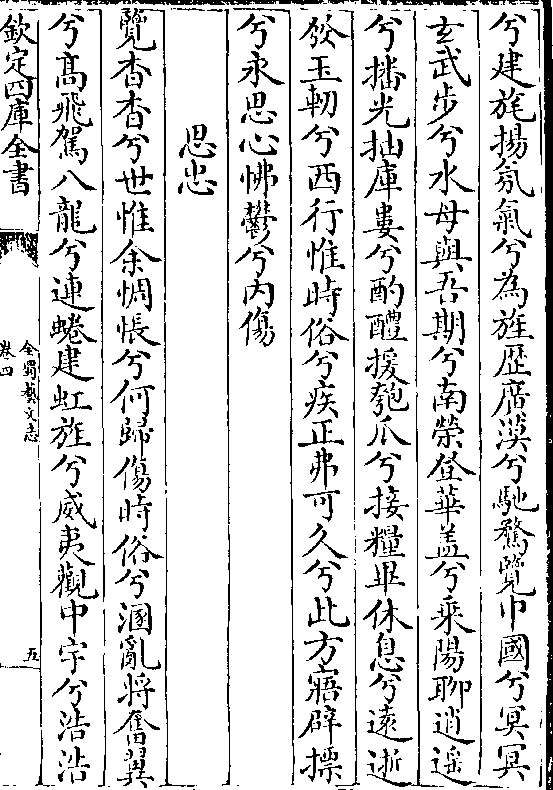 兮建旄揚氛氣兮為旌歴廣漠兮馳騖覽中國兮冥冥
玄武步兮水母與吾期兮南榮登華盖兮乗陽聊逍遥
兮播光抽庫婁兮酌醴援瓟瓜兮接糧畢休息兮逺逝
發玉軔兮西行惟時俗兮疾正弗可久兮此方寤辟摽
兮永思心怫鬱兮内傷
思忠
覽杳杳兮世惟余惆悵兮何歸傷時俗兮溷亂將奮翼
兮髙飛駕八龍兮連蜷建虹旌兮威夷觀中宇兮浩浩
欽定四庫全書
全蜀藝文志
卷四
五